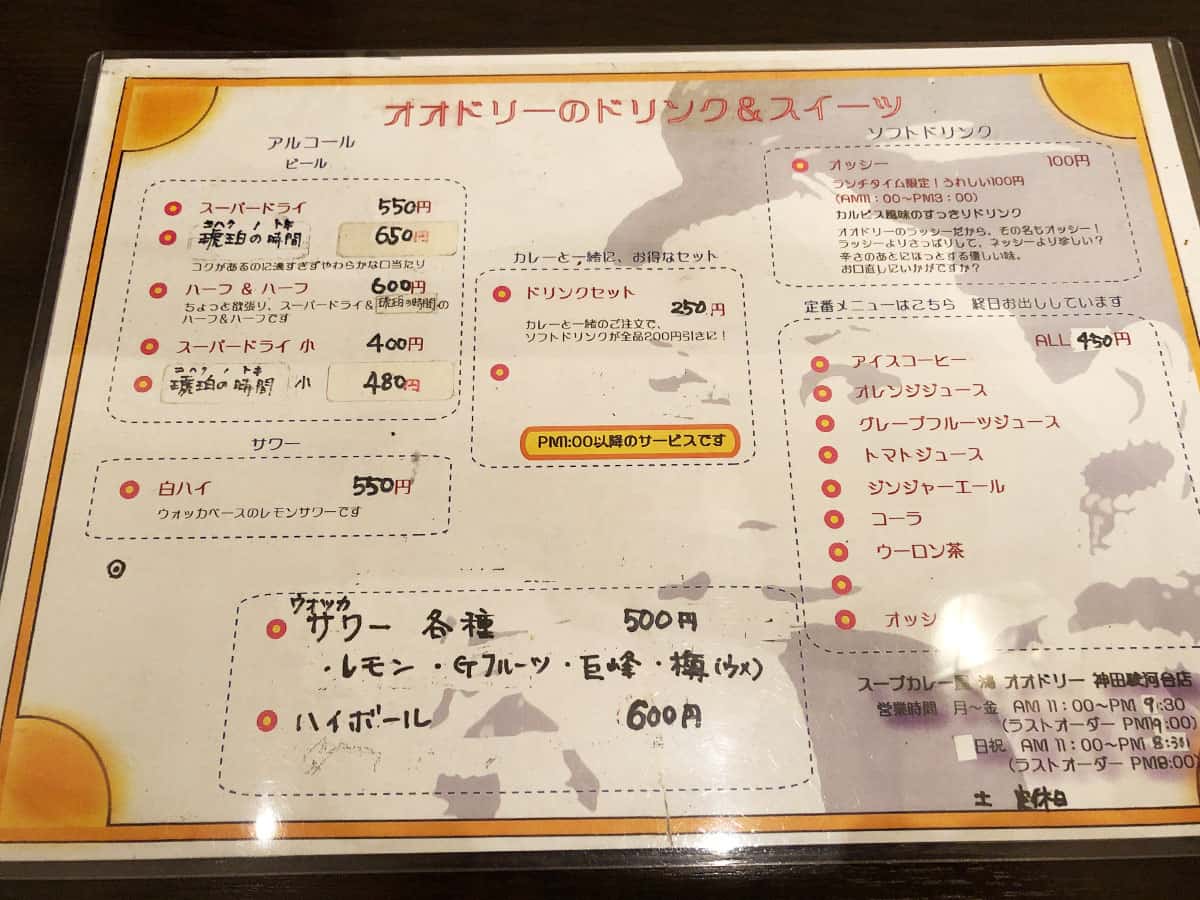 オオドリーのドリンク&スイーツ
アルコール
ビール
スーパードライ 550円
コハク ノ トキ
琥珀の時間 650円
コクがあるのに濃すぎずやわらかな口当たり
ハーフ & ハーフ 600円
ちょっと欲張り、スーパードライ&琥珀の時間の
ハーフ&ハーフです
スーパードライ 小 400円
コハク ノ トキ
琥珀の時間 小 480円
サワー
白ハイ 550円
ウォッカベースのレモンサワーです
カレーと一緒に、お得なセット
ドリンクセット 250円
カレーと一緒のご注文で、
ソフトドリンクが全品200円引きに!
PM1:00以降のサービスです
ソフトドリンク
オッシー 100円
ランチタイム限定!うれしい100円
(AM11:00~PM3:00)
カルピス風味のすっきりドリンク
オオドリーのラッシーだから、その名もオッシー!
ラッシーよりさっぱりして、ネッシーより珍しい?
辛さのあとにほっとする優しい味。
お口直しにいかがですか?
定番メニューはこちら 終日お出ししています
ALL 450円
アイスコーヒー
オレンジジュース
グレープフルーツジュース
トマトジュース
ジンジャーエール
コーラ
ウーロン茶
オッシ
ウォッカ
サワー 各種 500円
・レモン ・Gフルーツ ・巨峰 ・梅(ウメ)
ハイボール 600円
スープカレー屋 鴻 オオドリー 神田駿河台店
営業時間 月~金 AM 11:00~PM 9:30
(ラストオーダー PM9:00)
日祝 AM 11:00~PM 8:30
(ラストオーダー PM8:00)
土 定休日